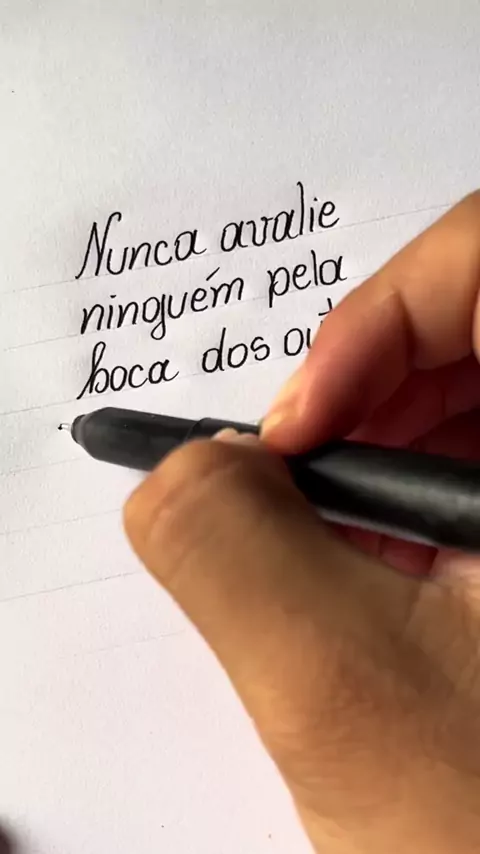 Nunca avalie
ninguém pela
boca dos